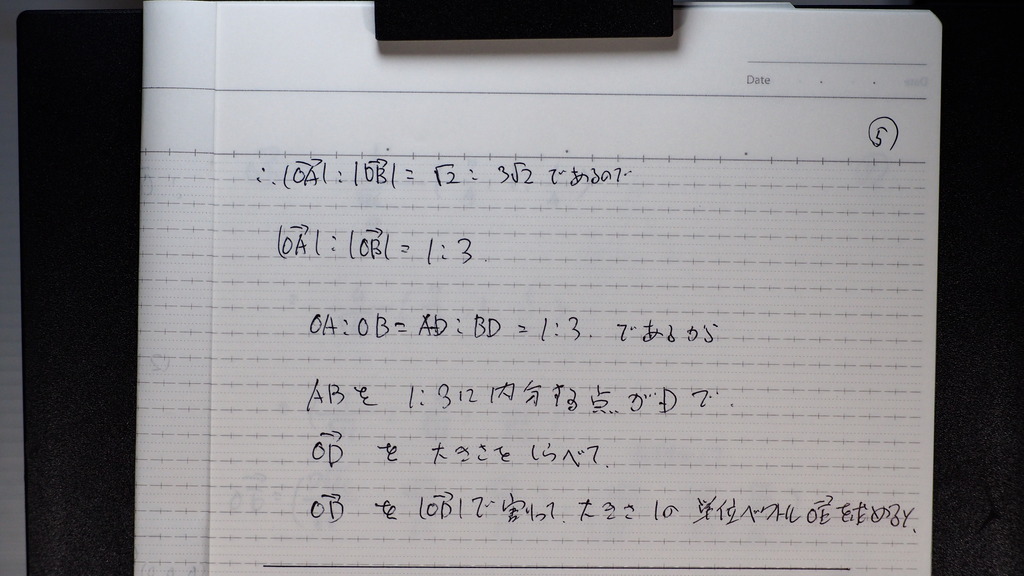 Date
⑤
∴ |OA→| : |OB→| = √2 : 3√2 であるので
|OA→| : |OB→| = 1 : 3.
OA : OB = AD : BD = 1 : 3. であるから
ABを 1:3に内分する点がDで.
OD→ を 大きさをしらべて.
OD→ を |OD→|で割って. 大きさ1の 単位ベクトル OE→を求めると.